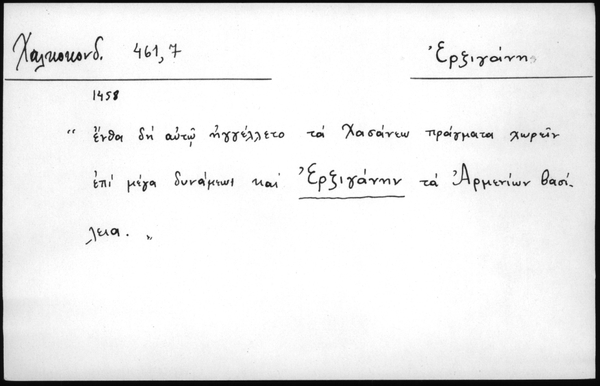 Χαλκοκονδ. 461,7 Ἐρζιγάνη
1458
“ ἔνθα δή αὐτῷ ἠγγέλλετο τά Χασάνεω πράγματα χωρεῖν
ἐπί μέγα δυνάμεως καί Ἐρζιγάνην τά Ἀρμενίων βασί-
λεια. ”